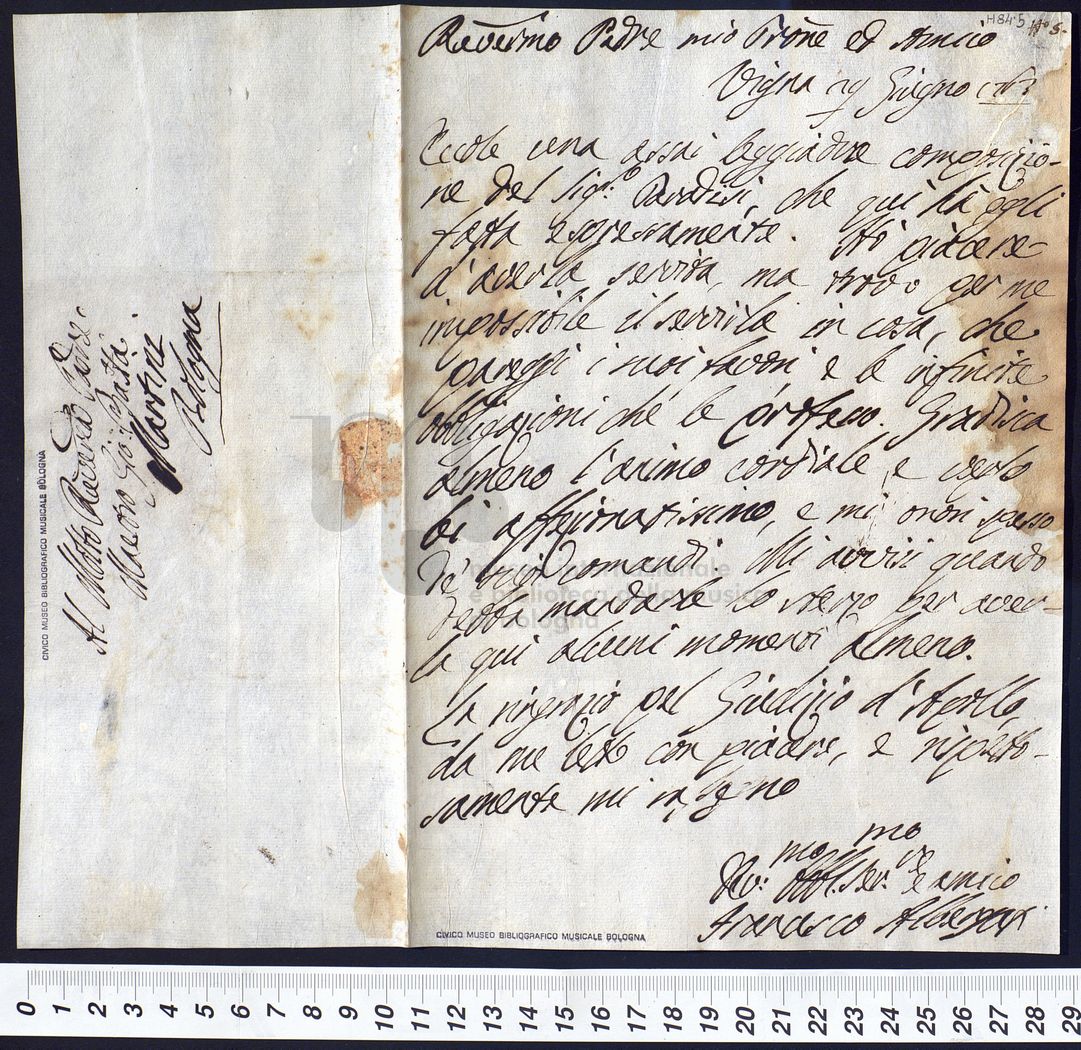 H84.5 N° 5.
Rev̄ermo Padre mio Pròne ed Amico
Vigna 29 Giugno
Eccole una assai leggiadra composizio-
ne del Sig.r Paradisi, che quì hà egli
fatta espressamente. Hò piacere
d'averla servita, ma trovo per me
impossibile il servirla in cosa, che
pareggi i suoi favori e le infinite
obbligazioni ch'e le professo. Gradisca
almeno l'animo cordiale, e verso
lei affezionatissimo, e mi onori spesso
de' suoi comandi. Mi avvisi quando
debba mandarle lo sterzo per aver-
la qui alcuni momenti almeno.
La ringrazio pel Giudizio d'Apollo,
da me letto con piacere, e rispetto-
samente mi rassegno
mo mo
Dev: Obbl. Ser.re e amico
Francesco Albergati
Al Molto Reverdo Padre
Maestro Gio: Batta
Martini
Bologna
CIVICO MUSEO BIBLIOGRAFICO MUSICALE BOLOGNA
CIVICO MUSEO BIBLIOGRAFICO MUSICALE BOLOGNA
museo internazionale
e biblioteca della musica
di bologna
0 1 2 3 4 5 6 7 8 9 10 11 12 13 14 15 16 17 18 19 20 21 22 23 24 25 26 27 28 29